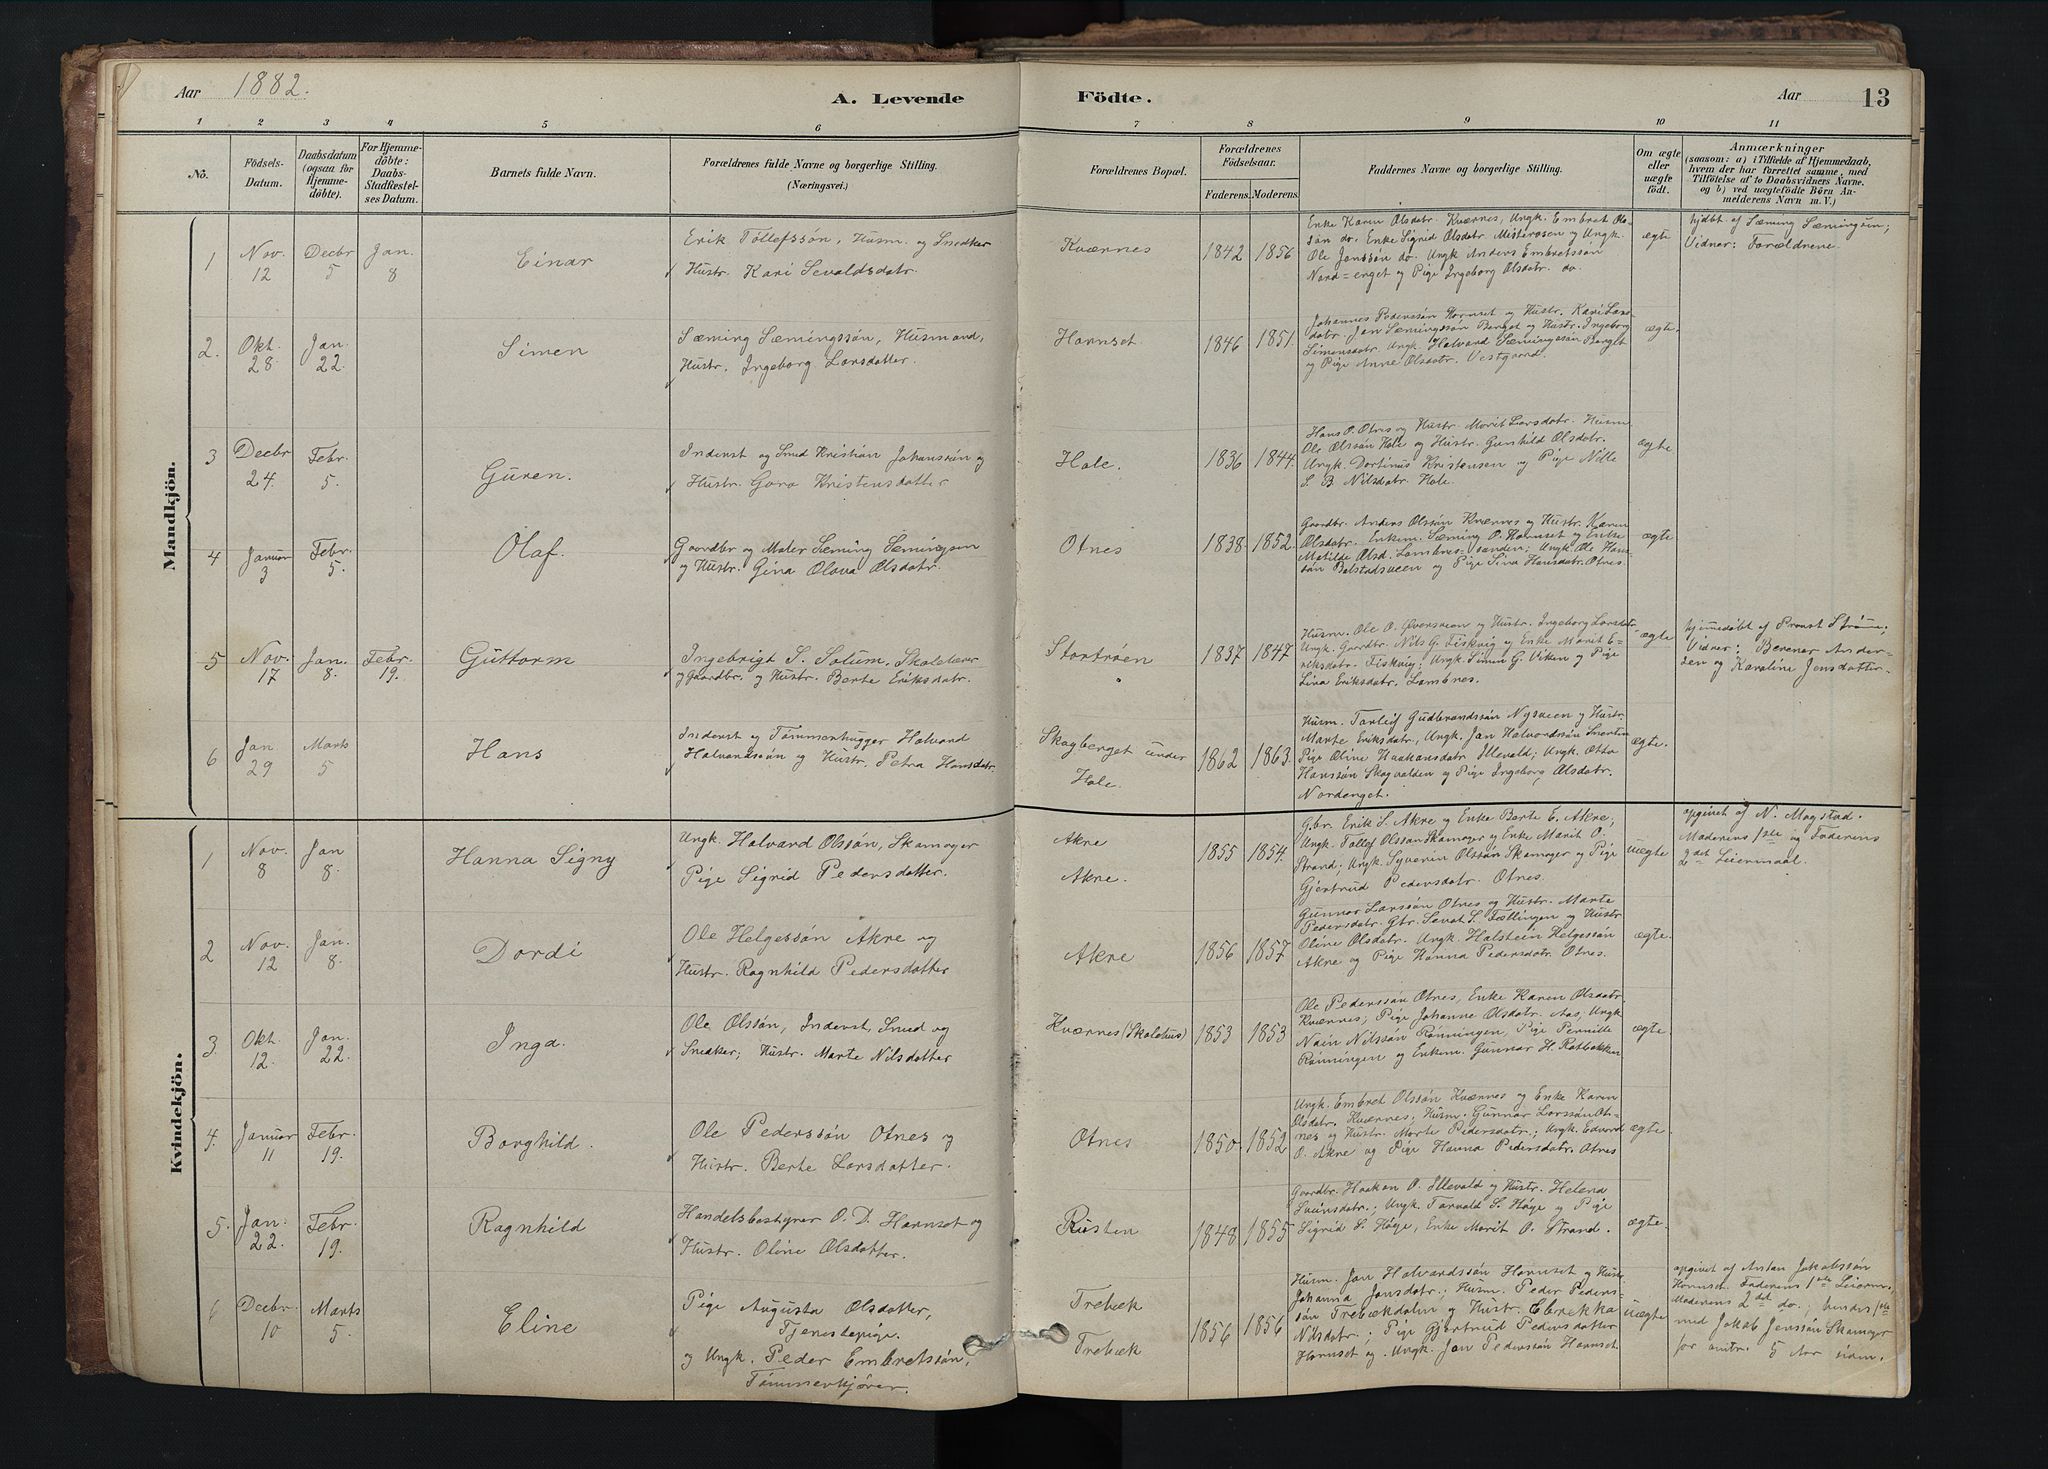 Aar 1882.
A. Levende
Födte.
Aar
13
1 2 3 4 5 6 7 8 9 10 11
No.
Födsels-
Datum.
Daabsdatum
(ogsaa for
Hjemme-
döbte).
For Hjemme-
döbte:
Daabs-
Stadfæstel-
ses Datum.
Barnets fulde Navn.
Forældrenes fulde Navne og borgerlige Stilling.
(Næringsvei.)
Forældrenes Bopæl.
Forældrenes
Födselsaar.
Faderens.
Moderens.
Faddernes Navne og borgerlige Stilling.
Om ægte
eller
uægte
födt.
Anmærkninger
(saasom: a) i Tilfælde af Hjemmedaab,
hvem der har forrettet samme, med
Tilföielse af to Daabsvidners Navne,
og b) ved uægtefödte Börn An-
melderens Navn m. V.)
Mandkjön.
1
Nov. 12
Decbr 5
Jan. 8
Einar
Erik Tollefssön, Husm. og Snedker
Hustr. Kari Sevaldsdatr.
Kværnes
1842
1856
Enke Karen Olsdatr. Kværnes, Ungk. Embret Ols-
sön do. Enke Sigrid Olsdatr. Misterosen og Ungk.
Ole Jonssön do. Ungk Anders Embretssön
Nord=enget og Pige Ingeborg Olsdatr. do.
ægte
hjdbt af Sæming Sæmingsen;
Vidner: Forældrene.
2.
Okt. 28.
Jan. 22.
Simen
Sæming Sæmingssön, Husmand,
Hustr. Ingeborg Larsdatter.
Hornset.
1846
1851.
Johannes Pederssön Hornset og Hustr. Kari Lars-
datr Jon Sæmingssön Berget og Hustr. Ingeborg
Simensdatr. Ungk Halvard Sæmingssön Berget
og Pige Anne Olsdatr. Vestgaard.
ægte.
3
Decbr 24.
Febr. 5.
Guren.
Inderst og Smed Kristian Johanssön og
Hustr. Goro Kristensdatter
Hole.
1836
1844.
Hans O. Otnes og Hustr. Marit Larsdatr. Husm
Ole Olssön Hole og Hustr. Gunhild Olsdatr.
Ungk. Dortinus Kristensen og Pige Nille
S. B. Nilsdatr. Hole.
ægte
4
Januar 3
Febr. 5.
Olaf.
Gaardbr og Maler Sæming Sæmingsen
og Hustr. Gina Olava Olsdatr.
Otnes
1838.
1852.
Gaardbr. Anders Olssön Kværnes og Hustr. Karen
Olsdatr. Enkem. Sæming O. Hornset og Enke
Matilde Olsd. Lombnes-sanden; Ungk. Ole Hans-
sön Bolstadsveen og Pige Lina Hansdatr. Otnes.
ægte
5
Nov. 17
Jan. 8.
Febr. 19.
Guttorm
Ingebrigt S. Solum, Skolelærer
og Gaardbr. og Hustr. Berte Eriksdatr.
Stortröen
1837
1847
Husm. Ole O. Översveen og Hustr. Ingeborg Larsdatr.
Ungk. Gaardbr. Nils G. Fiskvig og Enke Marit E-
riksdatr. Fiskvig; Ungk. Simen G. Viken og Pige
Lina Eriksdatr. Lombnes.
ægte
hjemmedöbt af Provst Ström;
Vidner: Berener Ander-
sen og Karoline Jensdatter.
6
Jan 29
Marts 5
Hans
Inderst og Tömmerhugger Halvard
Halvardssön og Hustr. Petra Hansdatr.
Skogberget under
Hole.
1862
1863.
Husm. Tarleif Gudbrandssön Nysveen og Hustr.
Marte Eriksdatr., Ungk. Jan Halvordssön
Pige Oline Haakonsdatr Illevold; Ungk. Otto
Hanssön Skogvolden og Pige Ingeborg Olsdatr.
Nordenget.
ægte.
Kvindekjön.
1
Nov. 8
Jan 8.
Hanna Signy
Ungk. Halvard Olssön, Skamoger
Pige Sigrid Pedersdatter.
Akre
Akre.
1855
1854.
Gbr. Erik S. Akre og Enke Berte E. Akre;
Ungk. Tollef Olsson Skamoger og Enke Marit O.
Strand; Ungk. Syverin Olssön Skamoger og Pige
Gjertrud Pedersdatr. Otnes.
uægte
opgivet af N. Mogstad.
Moderens 1ste og Faderens
2det Leiermaal.
2
Nov. 12
Jan. 8.
Dordi
Ole Helgessön Akre og
Hustr. Ragnhild Pedersdatter
Akre
1856
1857
Gunnar Larssön Otnes og Hustr. Marte
Pedersdatr. Gbr. Sevat S. Fællingen og Hustr
Oline Olsdatr. Ungk. Halstein Helgessön
Akre og Pige Hanna Pedersdatr. Otnes.
ægte.
3.
Okt. 12.
Jan. 22.
Inga.
Ole Olssön, Inderst, Smed og
Snedker; Hustr. Marte Nilsdatter
Kværnes (Skolehus)
1853
1853
Ole Pederssön Otnes, Enke Karen Olsdatr.
Kværnes; Pige Johanne Olsdatr. Aas, Ungk
Nain Nilssön Rönningen, Pige Pernille
Rönningen og Enkem. Gunnar H. Rotbakken
ægte
4.
Januar 11
Febr. 19.
Borghild.
Ole Pederssön Otnes og
Hustr. Berte Larsdatter.
Otnes
1850.
1852
Ungk. Embret Olssön Kværnes og Enke Karen
Olsdatr. Kværnes; Husm. Gunnar Larssön Ot-
nes og Hustr. Marte Pedersdatr.; Ungk. Edvard
O. Akre og Pige Hanna Pedersdatr. Otnes
ægte.
5.
Jan. 22.
Febr. 19.
Ragnhild
Handelsbestyrer O. D. Hornset og
Hustr. Oline Olsdatter.
Rusten
1848
1855
Gaardbr. Haakon O. Illevold og Hustr. Helena
Sveinsdatr.; Ungk. Tarvald S. Höge og Pige
Sigrid S. Höge, Enke Marit O. Strand.
ægte.
6
Decbr. 10
Marts 5.
Eline
Pige Augusta Olsdatter,
Tjenestepige.
og Ungk. Peder Embretssön,
Tömmerkjörer.
Trebæk
Trebæk
1856
1856
Husm. Jon Halvardssön Hornset og Hustr.
Johanna Jonsdatr.; Husm. Peder Peders-
sön Trebækdalen og Hustr. Ebrekka
Nilsdatr.; Pige Gjertrud Pedersdatter
Hornset og Ungk. Jon Pederssön Hornset.
uægte
opgivet af Anton Jakobssön
Hornset. Faderens 1ste Leierm.
Moderens 2det do.; hendes 1ste
med Jakob Jenssön Skamoger
for omtr. 5 Aar siden.